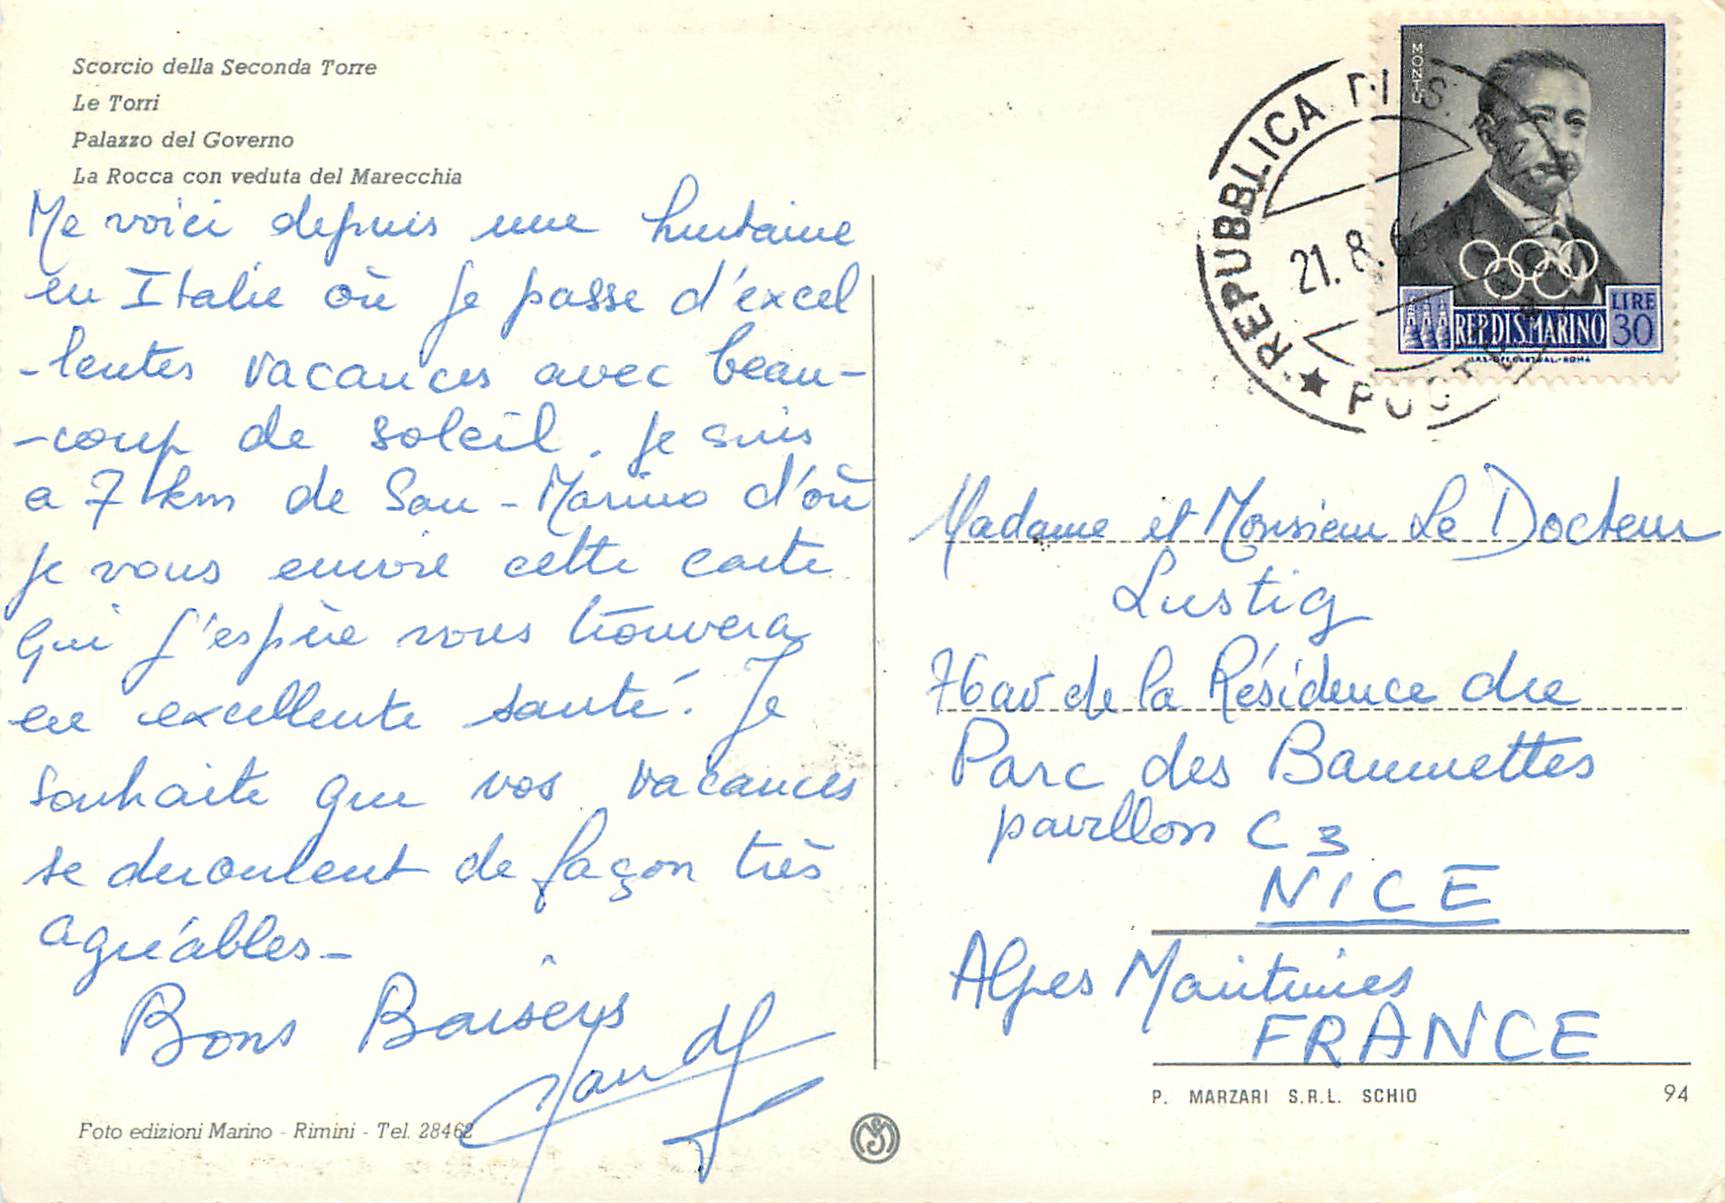 Scorcio della Seconda Torre
Le Torri
Palazzo del Governo
La Rocca con veduta del Marecchia
Me voici depuis une huitaine
en Italie où je passe d'excel
-lentes vacances avec beau-
-coup de soleil. Je suis
a 7 km de San-Marino d'où
je vous envoie cette carte
qui j'espère vous trouvera
en excellente santé. Je
souhaite que vos vacances
se deroulent de façon très
agréables-
Bons Baisers
Foto edizioni Marino - Rimini - Tel. 28462
MONTU
LIRE
30
REP. DI S. MARINO
REPUBBLICA DI S. MARINO
21. 8.
★ POSTE
Madame et Monsieur Le Docteur
Lustig
76 av de la Résidence du
Parc des Baumettes
pavillon C 3
NICE
Alpes Maritimes
FRANCE
P. MARZARI S.R.L. SCHIO
94